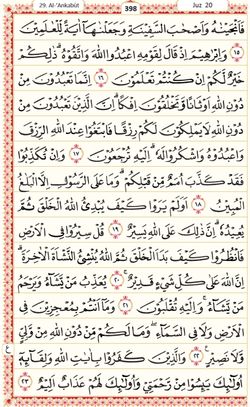 29. Al-'Ankabūt 398 Juz 20
فَأَنْجَيْنٰهُ وَاَصْحٰبَ السَّفِيْنَةِ وَجَعَلْنٰهَآ اٰيَةً لِّلْعٰلَمِيْنَ
١٥ وَاِبْرٰهِيْمَ اِذْ قَالَ لِقَوْمِهِ اعْبُدُوا اللّٰهَ وَاتَّقُوْهُ ۗذٰلِكُمْ
خَيْرٌ لَّكُمْ اِنْ كُنْتُمْ تَعْلَمُوْنَ ١٦ اِنَّمَا تَعْبُدُوْنَ مِنْ
دُوْنِ اللّٰهِ اَوْثَانًا وَّتَخْلُقُوْنَ اِفْكًا ۗاِنَّ الَّذِيْنَ تَعْبُدُوْنَ مِنْ
دُوْنِ اللّٰهِ لَا يَمْلِكُوْنَ لَكُمْ رِزْقًا فَابْتَغُوْا عِنْدَ اللّٰهِ الرِّزْقَ
وَاعْبُدُوْهُ وَاشْكُرُوْا لَهٗ ۗاِلَيْهِ تُرْجَعُوْنَ ١٧ وَاِنْ تُكَذِّبُوْا
فَقَدْ كَذَّبَ اُمَمٌ مِّنْ قَبْلِكُمْ ۗوَمَا عَلَى الرَّسُوْلِ اِلَّا الْبَلٰغُ
الْمُبِيْنُ ١٨ اَوَلَمْ يَرَوْا كَيْفَ يُبْدِئُ اللّٰهُ الْخَلْقَ ثُمَّ
يُعِيْدُهٗ ۗاِنَّ ذٰلِكَ عَلَى اللّٰهِ يَسِيْرٌ ١٩ قُلْ سِيْرُوْا فِى الْاَرْضِ
فَانْظُرُوْا كَيْفَ بَدَاَ الْخَلْقَ ثُمَّ اللّٰهُ يُنْشِئُ النَّشْاَةَ الْاٰخِرَةَ ۗ
اِنَّ اللّٰهَ عَلٰى كُلِّ شَيْءٍ قَدِيْرٌ ٢٠ يُعَذِّبُ مَنْ يَّشَاۤءُ وَيَرْحَمُ
مَنْ يَّشَاۤءُ ۚوَاِلَيْهِ تُقْلَبُوْنَ ٢١ وَمَآ اَنْتُمْ بِمُعْجِزِيْنَ فِى
الْاَرْضِ وَلَا فِى السَّمَاۤءِ ۖوَمَا لَكُمْ مِّنْ دُوْنِ اللّٰهِ مِنْ وَّلِيٍّ
وَّلَا نَصِيْرٍ ٢٢ وَالَّذِيْنَ كَفَرُوْا بِاٰيٰتِ اللّٰهِ وَلِقَاۤىِٕهٖٓ
اُولٰۤىِٕكَ يَىِٕسُوْا مِنْ رَّحْمَتِيْ وَاُولٰۤىِٕكَ لَهُمْ عَذَابٌ اَلِيْمٌ ٢٣
ع